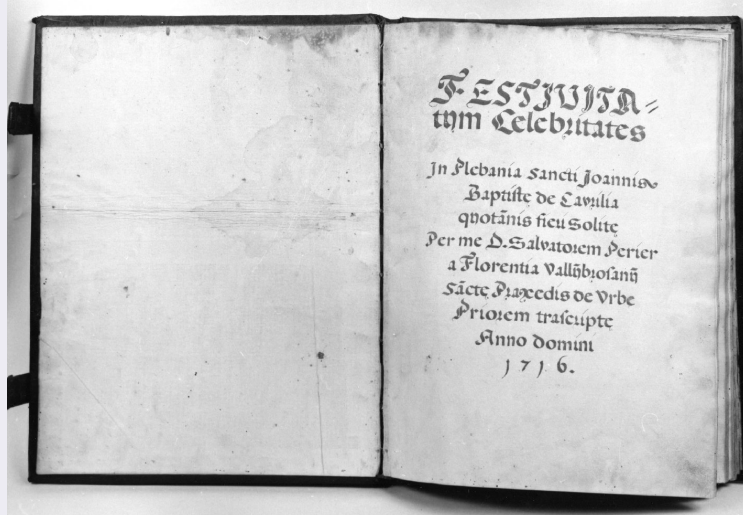 FESTIVITA=
tum Celebritates
In Plebania Sancti Joannis
Baptiste de Cavrilia
quotānis fieri Solitę
Per me D. Salvatorem Perier
a Florentia Vallūbrosanū
Sāctę Praxedis de Vrbe
Priorem trascriptę
Anno Domini
1716.